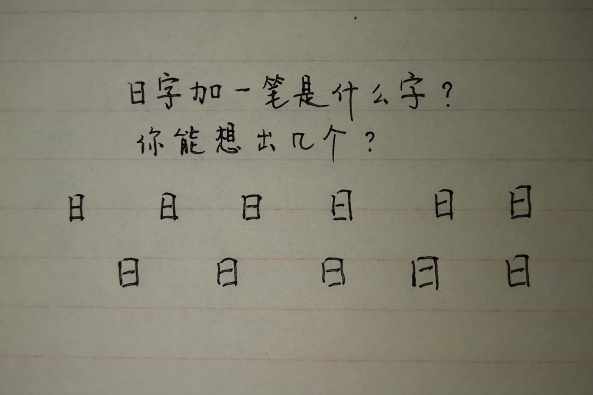 日字加一笔是什么字？
你能想出几个？
日 日 日 日 日 日
日 日 日 日 日